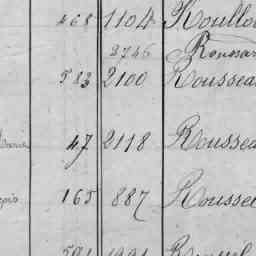 468 1104 Roullo
2746 Roussa
583 2100 Roussea
47 2118 Roussea
165 887 Roussel
591 1991